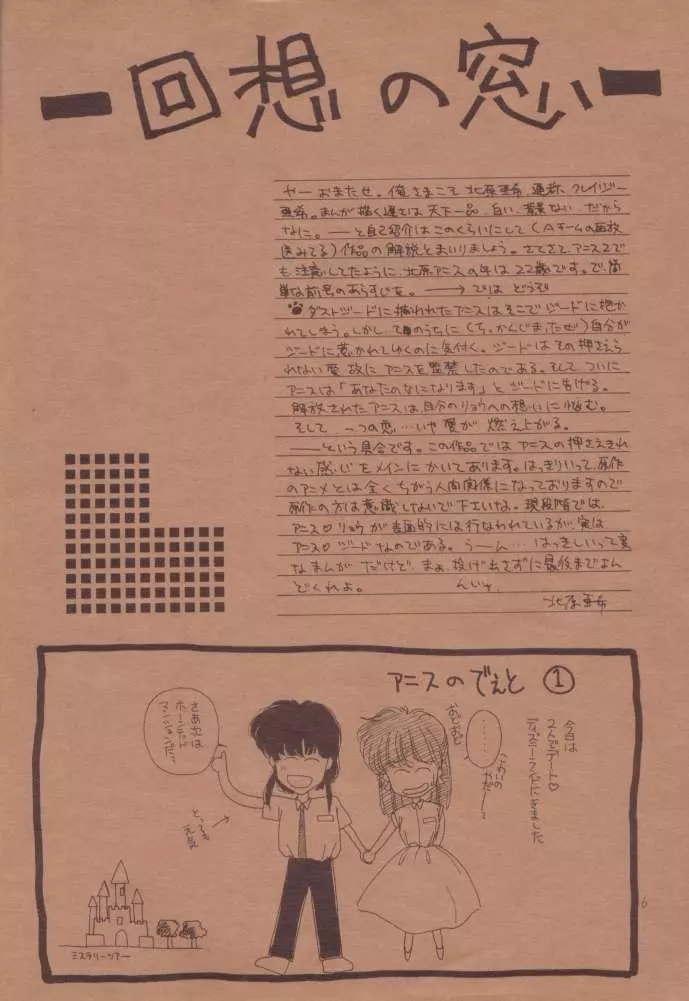 回想の窓
ヤー おまたせ。俺さまこそ 北原亜希、通称、クレイジー
亜希。まんが描く速さは 天下一品、白い、背景ない、だから
なに。――と自己紹介は このくらいにして (Aチームの再放
送みてる) 作品の解説とまいりましょう。さてさて、アニス2で
も、注意してたように、北原アニスの年は 22歳です。で、簡
単な前号のあらすじを。――→ では どうぞ
ダストジードに捕われたアニスは そこで ジードに抱か
れてしまう。しかし、そのうちに (ち、かんじまったぜ) 自分が
ジードに惹かれてゆくのに気付く。ジードは その押さえら
れない愛故に アニスを監禁したのである。そして ついに
アニスは「あなたのなにになります」と ジードに告げる。
解放されたアニスは、自分のリョウへの想いに悩む。
そして 一つの恋…いや愛が 燃え上がる。
――という具合です。この作品では アニスの押さえきれ
ない感心をメインにかいてあります。はっきりいって、原作
のアニメとは全くちがう人間関係になっておりますので
原作の方は意識しないで下さいな。現段階では、
アニス♡リョウが表面的には行なわれているが、実は
アニス♡ジードなのである。うーん… はっきしいって変
なまんが だけど、まぁ、投げ出さずに最後までよん
どくれよ。
北原亜希
アニスのでぇと ①
今日は
2人でデート♡
ディズニーランドにきました
さあ次は
ホーンテッド
マンションだ!
………
とっても
元気
ミステリーツアー
6